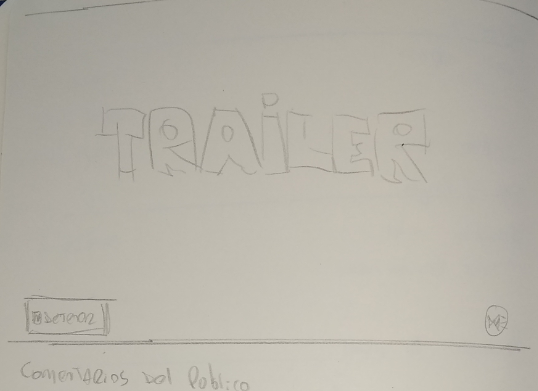 TRAiLER
DETENER
Comentarios del Publico